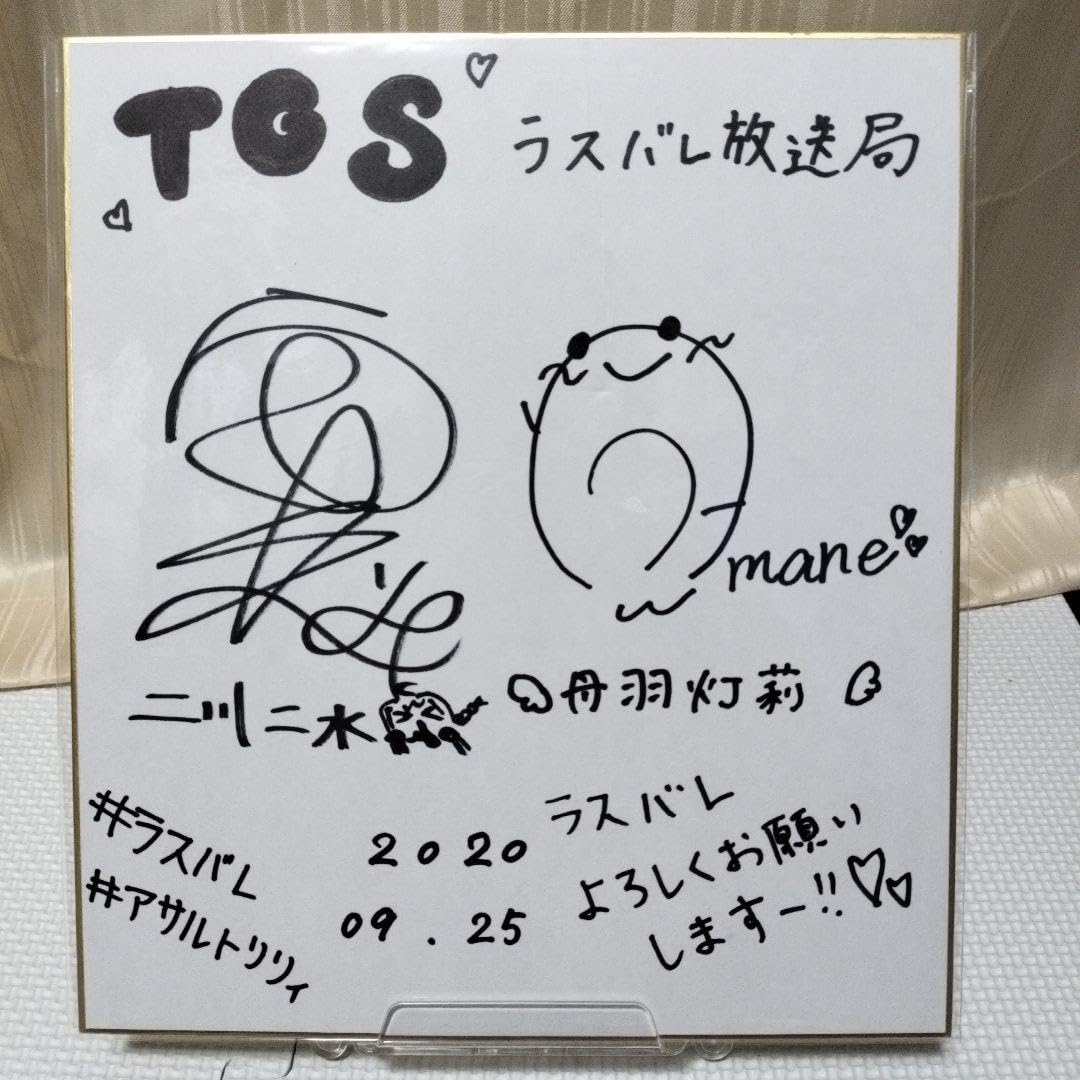 TGS
ラスバレ放送局
mane
二川二水
丹羽灯莉
#ラスバレ
#アサルトリリィ
2020
09.25
ラスバレ
よろしくお願い
しますー!!